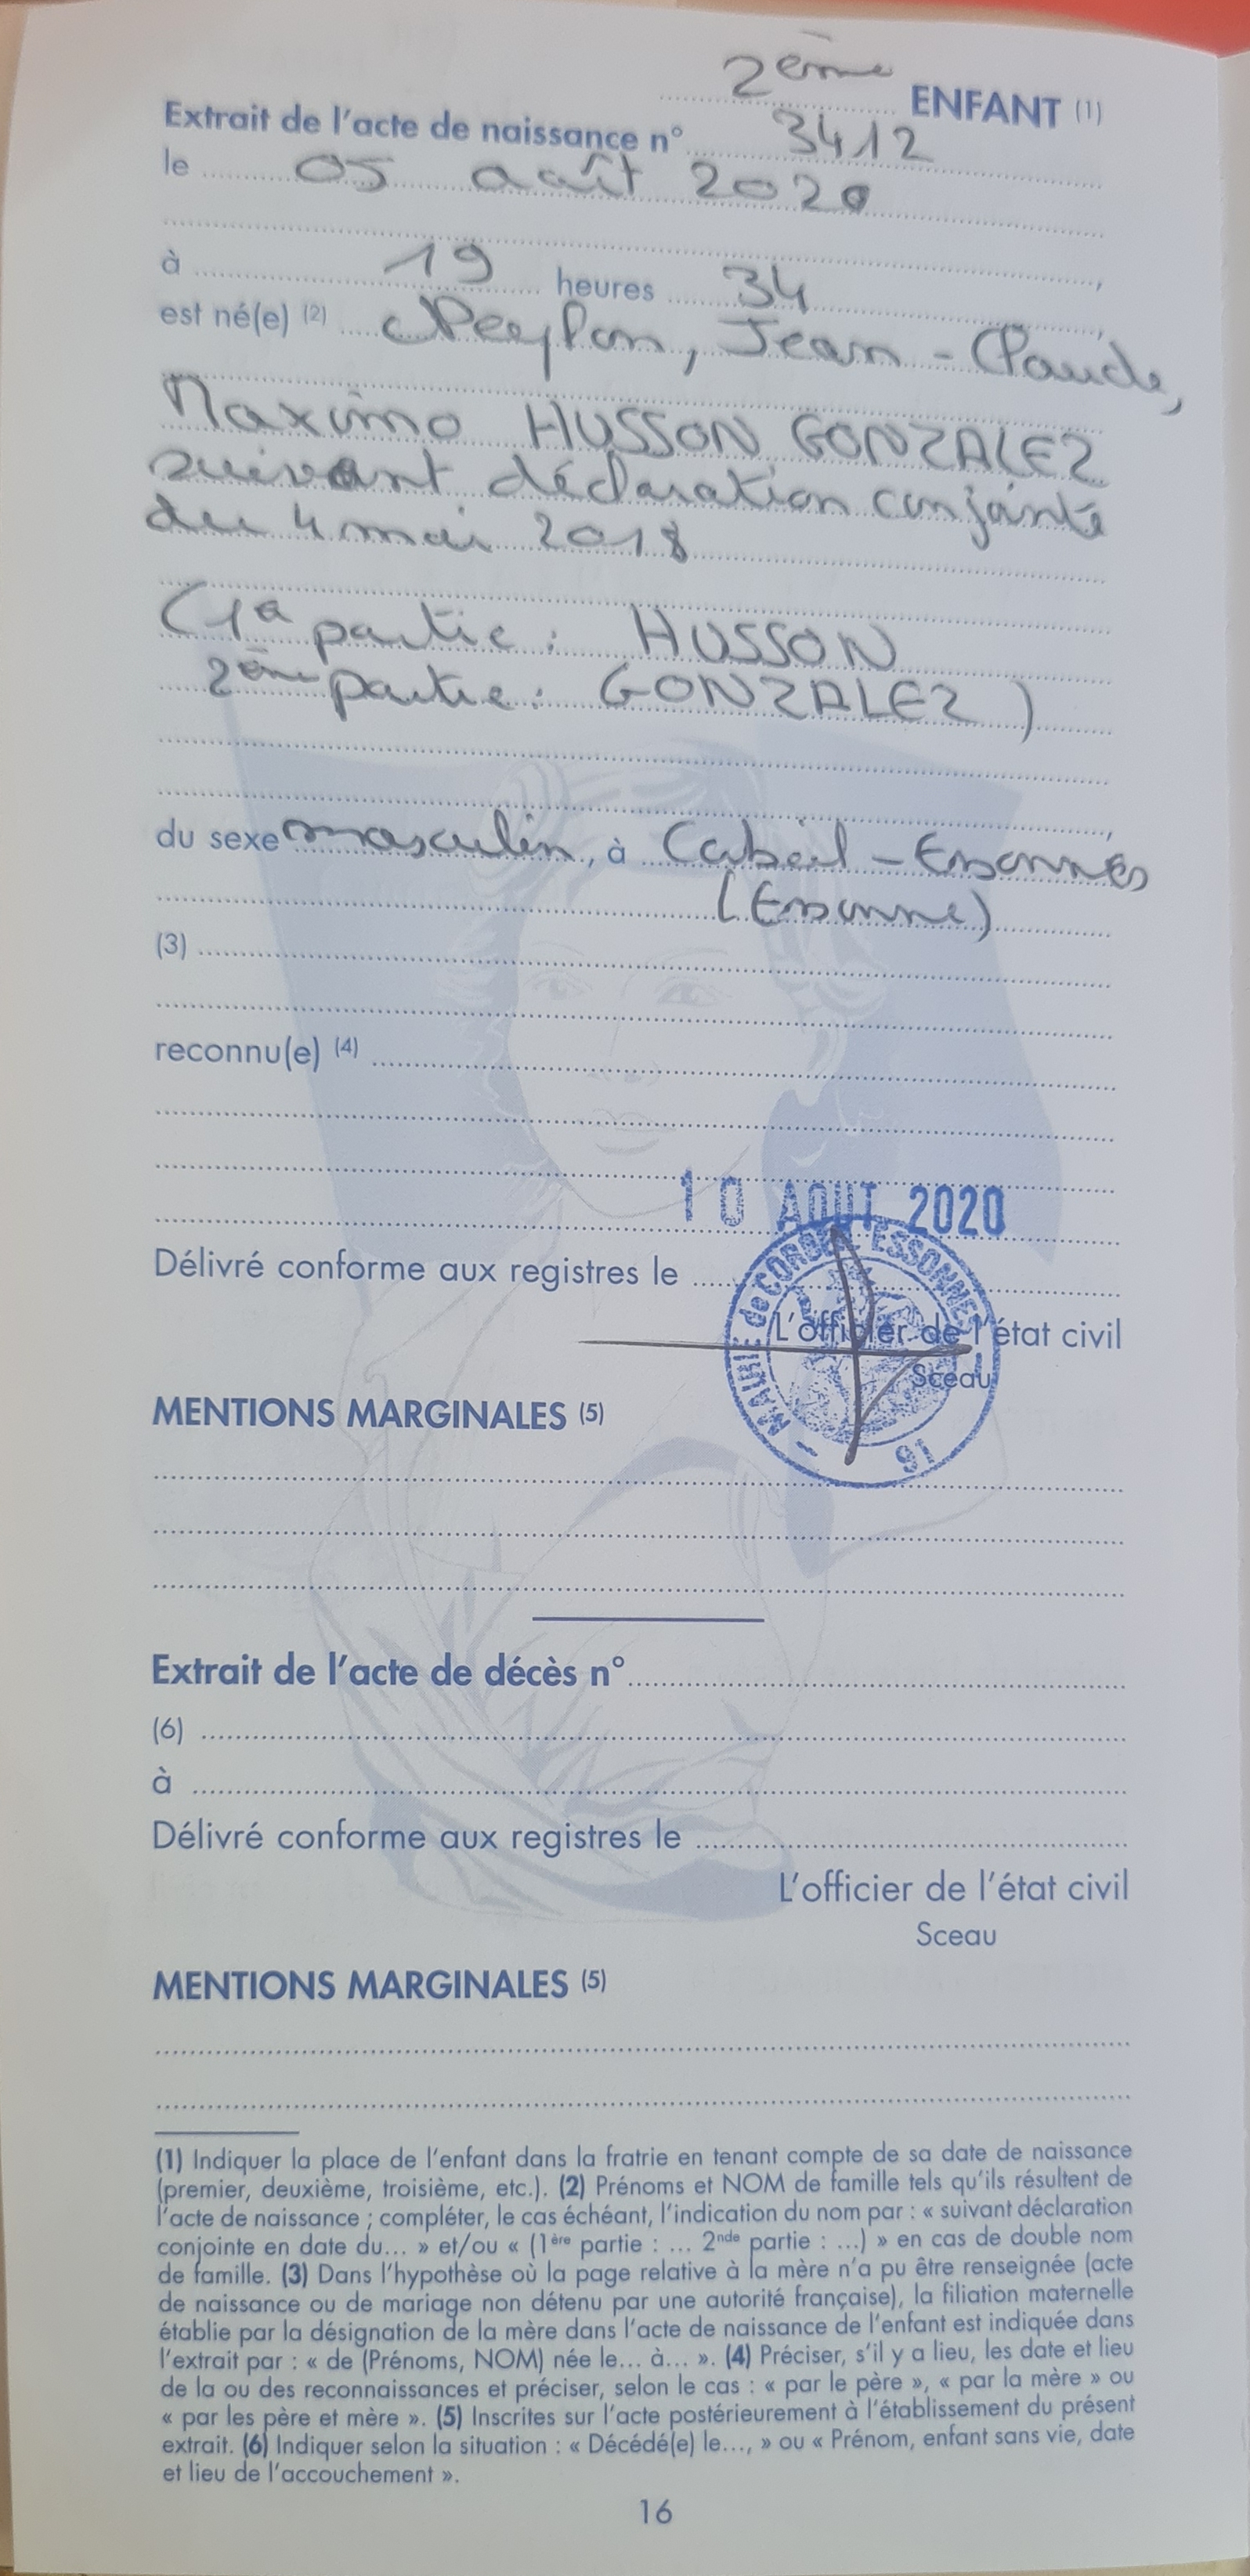 2ème ENFANT (1)
Extrait de l'acte de naissance n° 3412
le 05 août 2020
à 19 heures 34
est né(e) (2) Neylan, Jean-Claude,
Maximo HUSSON GONZALEZ
suivant déclaration conjointe
du 4 mai 2018
(1e partie : HUSSON
2ème partie : GONZALEZ)
du sexe masculin, à Corbeil-Essonnes
(Essonne)
(3)
reconnu(e) (4)
10 AOUT 2020
Délivré conforme aux registres le
MAIRIE de CORBEIL-ESSONNES
91
L'officier de l'état civil
Sceau
MENTIONS MARGINALES (5)
Extrait de l'acte de décès n°
(6)
à
Délivré conforme aux registres le
L'officier de l'état civil
Sceau
MENTIONS MARGINALES (5)
(1) Indiquer la place de l'enfant dans la fratrie en tenant compte de sa date de naissance
(premier, deuxième, troisième, etc.). (2) Prénoms et NOM de famille tels qu'ils résultent de
l'acte de naissance ; compléter, le cas échéant, l'indication du nom par : « suivant déclaration
conjointe en date du... » et/ou « (1ère partie : ... 2nde partie : ...) » en cas de double nom
de famille. (3) Dans l'hypothèse où la page relative à la mère n'a pu être renseignée (acte
de naissance ou de mariage non détenu par une autorité française), la filiation maternelle
établie par la désignation de la mère dans l'acte de naissance de l'enfant est indiquée dans
l'extrait par : « de (Prénoms, NOM) née le... à... ». (4) Préciser, s'il y a lieu, les date et lieu
de la ou des reconnaissances et préciser, selon le cas : « par le père », « par la mère » ou
« par les père et mère ». (5) Inscrites sur l'acte postérieurement à l'établissement du présent
extrait. (6) Indiquer selon la situation : « Décédé(e) le..., » ou « Prénom, enfant sans vie, date
et lieu de l'accouchement ».
16